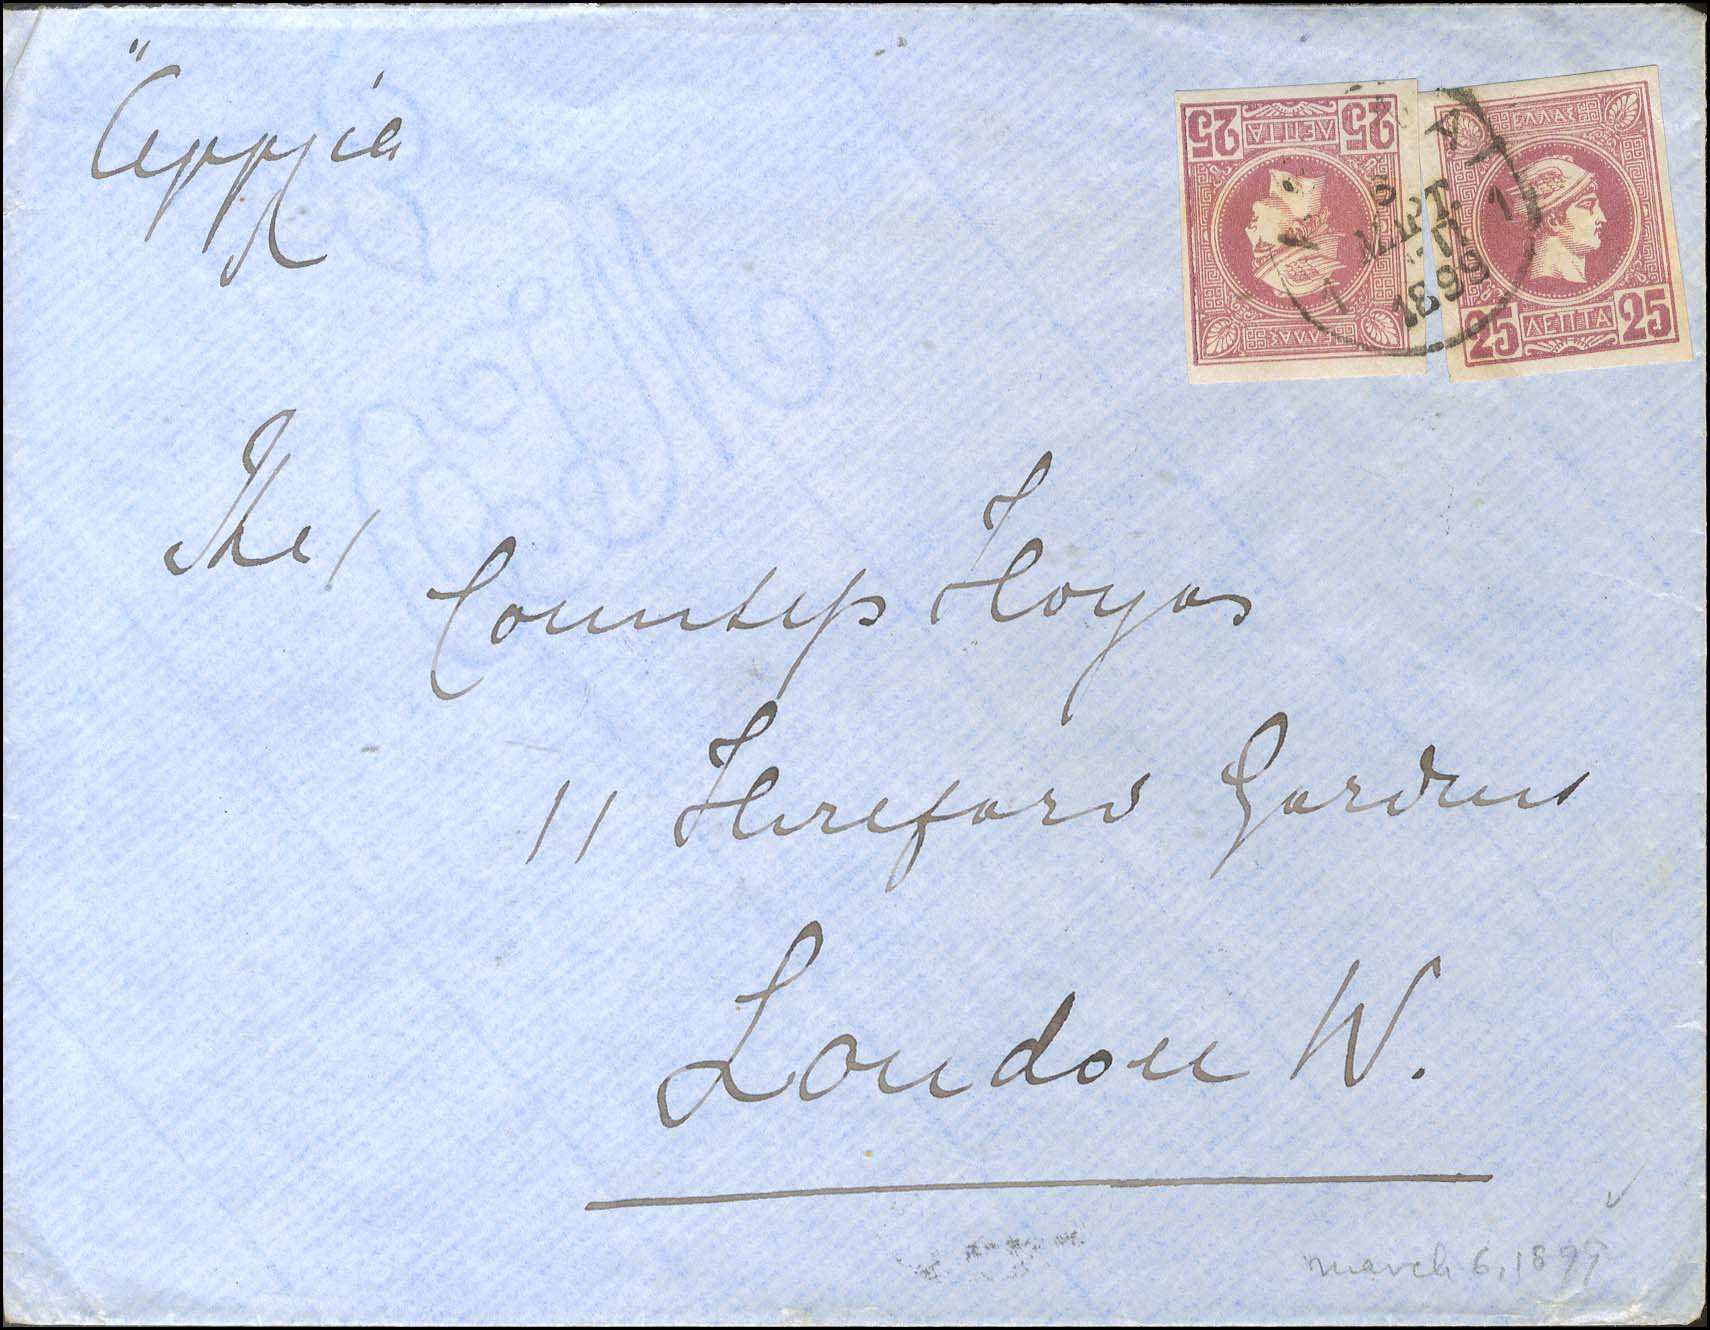 "Αγγλία
25 ΛΕΠΤΑ 25
ΕΛΛΑΣ
ΕΛΛΑΣ
25 ΛΕΠΤΑ 25
ΜΑΡΤ.
1899
1
The
Countess Hoyos
11 Hereford Gardens
London W.
march 6, 1899